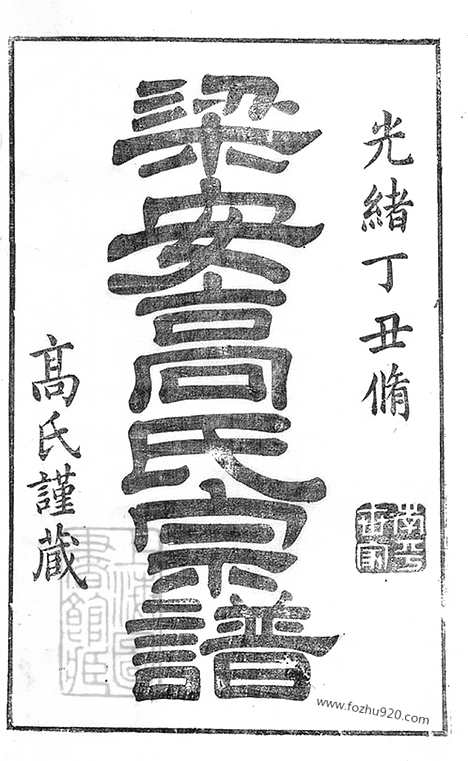 光緒丁丑脩
梁安高氏宗譜
髙氏謹藏
www.fozhu920.com